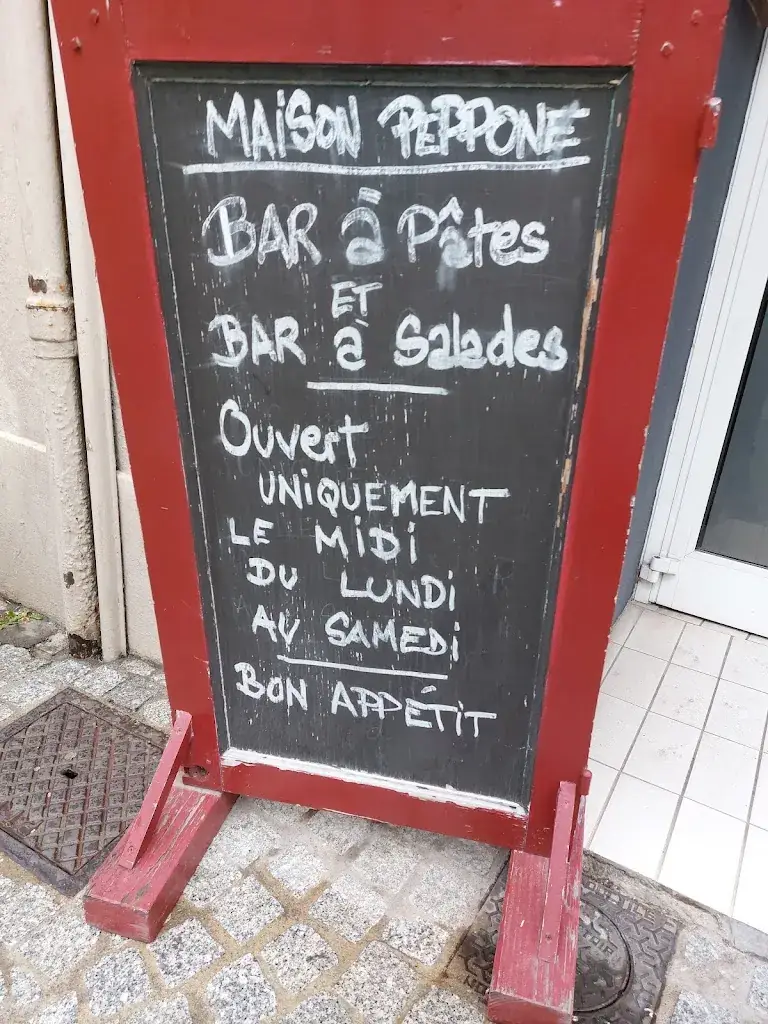 MAISON PEPPONE
BAR à Pâtes
ET
BAR à Salades
Ouvert
UNIQUEMENT
LE MIDI
DU LUNDI
AU SAMEDI
BON APPÉTIT